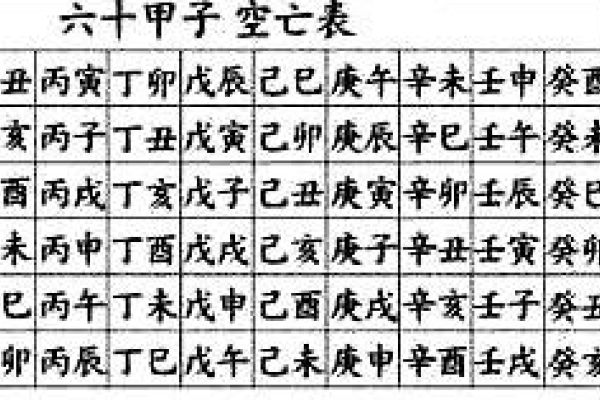 六十甲子 空亡表
丑 丙寅 丁卯 戊辰 己巳 庚午 辛未 壬申 癸酉
亥 丙子 丁丑 戊寅 己卯 庚辰 辛巳 壬午 癸未
酉 丙戌 丁亥 戊子 己丑 庚寅 辛卯 壬辰 癸巳
未 丙申 丁酉 戊戌 己亥 庚子 辛丑 壬寅 癸卯
巳 丙午 丁未 戊申 己酉 庚戌 辛亥 壬子 癸丑
卯 丙辰 丁巳 戊午 己未 庚申 辛酉 壬戌 癸亥